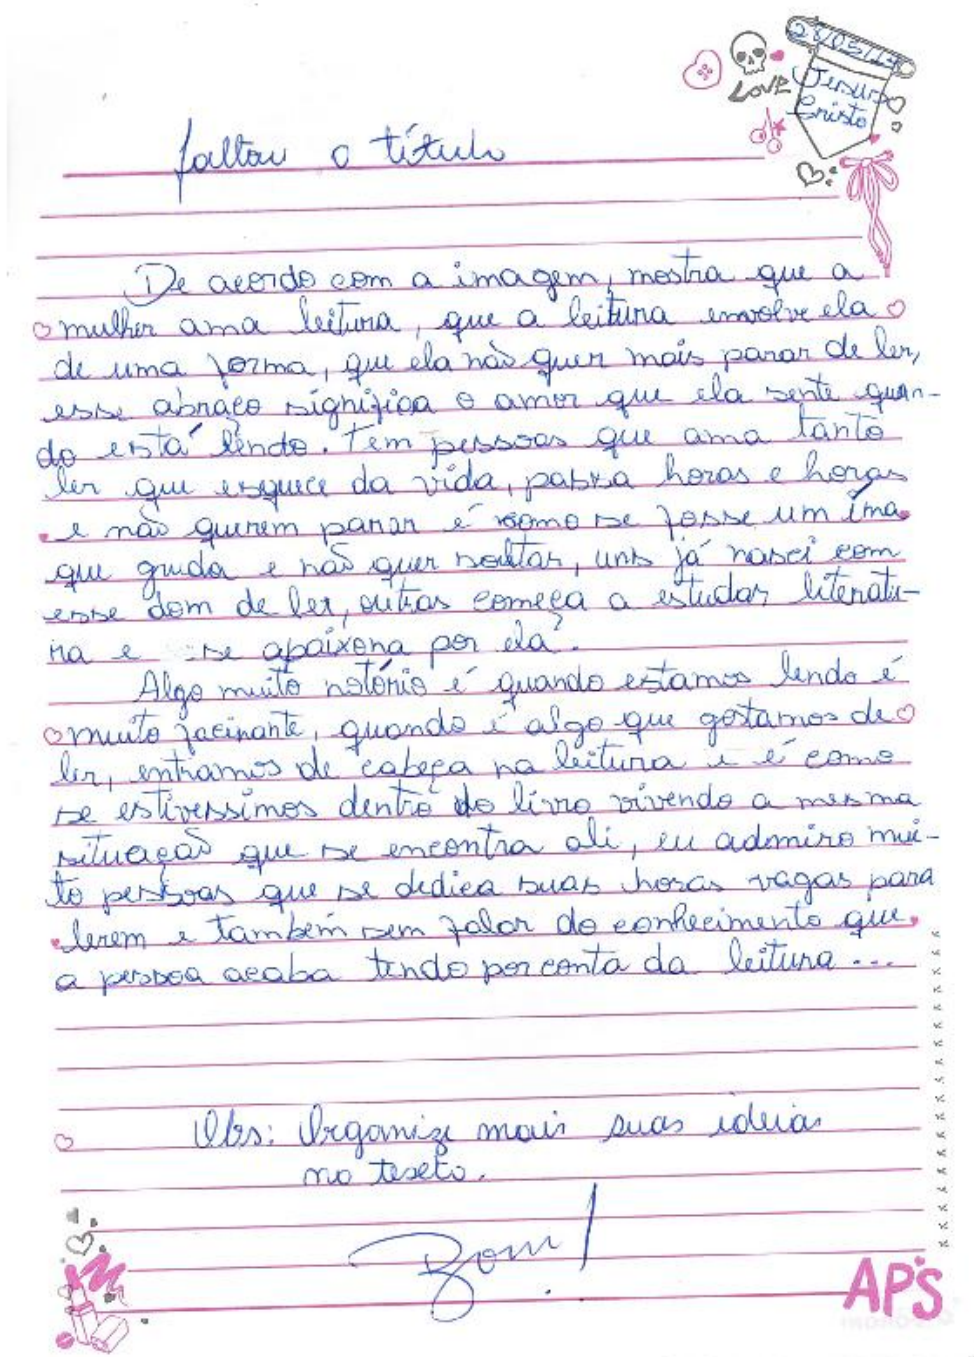 28/05/14
LOVE
Jesus
Cristo
faltou o título
De acordo com a imagem, mostra que a
mulher ama leitura, que a leitura envolve ela
de uma forma, que ela não quer mais parar de ler,
esse abraço significa o amor que ela sente quan-
do está lendo. Tem pessoas que ama tanto
ler que esquece da vida, passa horas e horas
e não querem parar é como se fosse um íma
que gruda e não quer soltar, uns já nasci com
esse dom de ler, outras começa a estudar literatu-
ra e se apaixona por ela.
Algo muito notório é quando estamos lendo é
muito facinante, quando é algo que gostamos de
ler, entramos de cabeça na leitura e é como
se estivessimos dentro do livro vivendo a mesma
situação que se encontra ali, eu admiro mui-
to pessoas que se dedica suas horas vagas para
lerem e também sem falar do conhecimento que
a pessoa acaba tendo por conta da leitura...
Obs: Organize mais suas ideias
no texto.
Bom!
AP'S